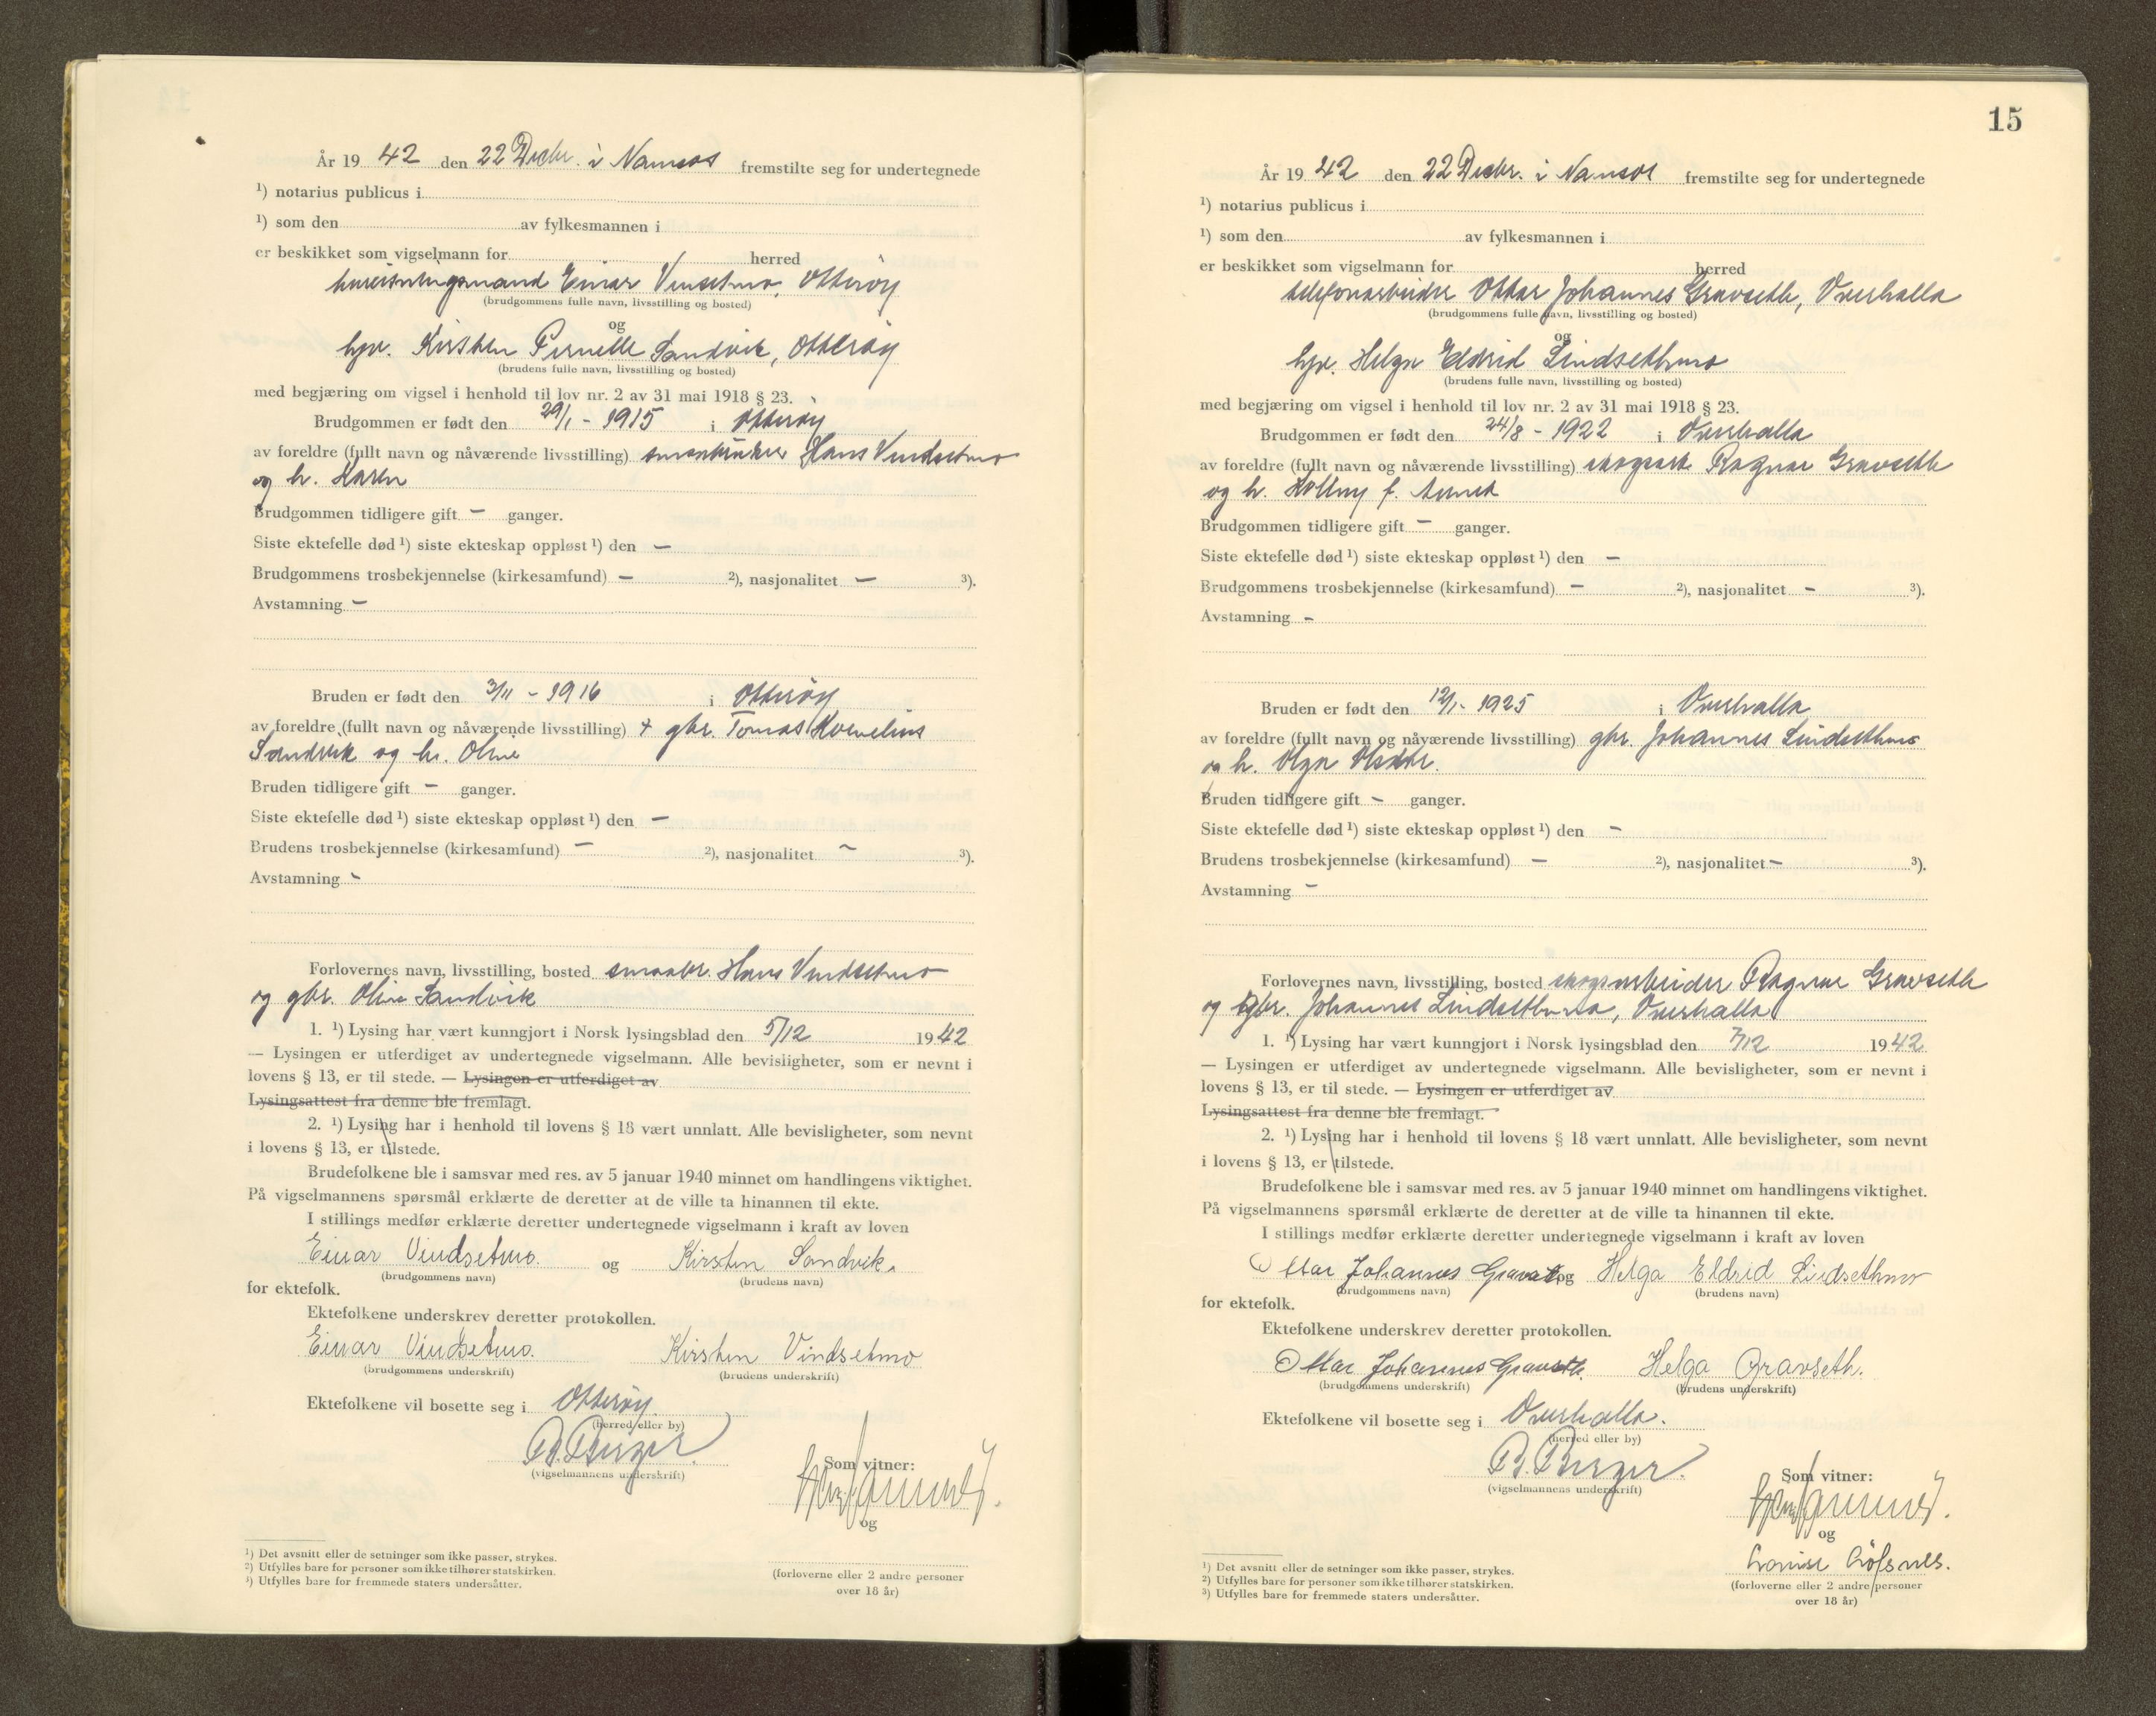 År 19 42 den 22 Decbr. i Namsos fremstilte seg for undertegnede
¹) notarius publicus i
¹) som den av fylkesmannen i
er beskikket som vigselmann for herred
Einar Vinsetmo, Otterøy
(brudgommens fulle navn, livsstilling og bosted)
og
hpr. Kirsten Pernelle Sandvik, Otterøy
(brudens fulle navn, livsstilling og bosted)
med begjæring om vigsel i henhold til lov nr. 2 av 31 mai 1918 § 23.
Brudgommen er født den 29/1 - 1915 i Otterøy
av foreldre (fullt navn og nåværende livsstilling) småbruker Hans Vindsetmo
og h. Karen
Brudgommen tidligere gift - ganger.
Siste ektefelle død ¹) siste ekteskap oppløst ¹) den -
Brudgommens trosbekjennelse (kirkesamfund) - ²), nasjonalitet - ³).
Avstamning -
Bruden er født den 3/11 - 1916 i Otterøy
av foreldre (fullt navn og nåværende livsstilling) + gbr. Tomas Kornelius
Sandvik og h. Oline
Bruden tidligere gift - ganger.
Siste ektefelle død ¹) siste ekteskap oppløst ¹) den -
Brudens trosbekjennelse (kirkesamfund) - ²), nasjonalitet - ³).
Avstamning -
Forlovernes navn, livsstilling, bosted smaabr. Hans Vindsetmo
og gbr. Olin Sandvik
1. ¹) Lysing har vært kunngjort i Norsk lysingsblad den 5/12 1942
— Lysingen er utferdiget av undertegnede vigselmann. Alle bevisligheter, som er nevnt i
lovens § 13, er til stede. — Lysingen er utferdiget av
Lysingsattest fra denne ble fremlagt.
2. ¹) Lysing har i henhold til lovens § 18 vært unnlatt. Alle bevisligheter, som nevnt
i lovens § 13, er tilstede.
Brudefolkene ble i samsvar med res. av 5 januar 1940 minnet om handlingens viktighet.
På vigselmannens spørsmål erklærte de deretter at de ville ta hinannen til ekte.
I stillings medfør erklærte deretter undertegnede vigselmann i kraft av loven
Einar Vindsetmo. og Kirsten Sandvik.
(brudgommens navn) (brudens navn)
for ektefolk.
Ektefolkene underskrev deretter protokollen.
Einar Vindsetmo. Kirsten Vindsetmo
(brudgommens underskrift) (brudens underskrift)
Ektefolkene vil bosette seg i Otterøy.
(herred eller by)
B. Berger.
(vigselmannens underskrift)
Som vitner:
og
(forloverne eller 2 andre personer
over 18 år)
¹) Det avsnitt eller de setninger som ikke passer, strykes.
²) Utfylles bare for personer som ikke tilhører statskirken.
³) Utfylles bare for fremmede staters undersåtter.
15
År 19 42 den 22 Decbr. i Namsos fremstilte seg for undertegnede
¹) notarius publicus i
¹) som den av fylkesmannen i
er beskikket som vigselmann for herred
telefonarbeider Ottar Johannes Gravseth, Overhalla
(brudgommens fulle navn, livsstilling og bosted)
og
hpr. Helga Eldrid Lindsethmo
(brudens fulle navn, livsstilling og bosted)
med begjæring om vigsel i henhold til lov nr. 2 av 31 mai 1918 § 23.
Brudgommen er født den 24/8 - 1922 i Overhalla
av foreldre (fullt navn og nåværende livsstilling) skogsarb. Ragnar Gravseth
og h. f.
Brudgommen tidligere gift - ganger.
Siste ektefelle død ¹) siste ekteskap oppløst ¹) den -
Brudgommens trosbekjennelse (kirkesamfund) - ²), nasjonalitet - ³).
Avstamning -
Bruden er født den 12/1 - 1925 i Overhalla
av foreldre (fullt navn og nåværende livsstilling) gbr. Johannes Lindsethmo
og h. Olga
Bruden tidligere gift - ganger.
Siste ektefelle død ¹) siste ekteskap oppløst ¹) den -
Brudens trosbekjennelse (kirkesamfund) - ²), nasjonalitet - ³).
Avstamning -
Forlovernes navn, livsstilling, bosted skogsarbeider Ragnar Gravseth
og gbr. Johannes Lindsethmo, Overhalla
1. ¹) Lysing har vært kunngjort i Norsk lysingsblad den 7/12 1942
— Lysingen er utferdiget av undertegnede vigselmann. Alle bevisligheter, som er nevnt i
lovens § 13, er til stede. — Lysingen er utferdiget av
Lysingsattest fra denne ble fremlagt.
2. ¹) Lysing har i henhold til lovens § 18 vært unnlatt. Alle bevisligheter, som nevnt
i lovens § 13, er tilstede.
Brudefolkene ble i samsvar med res. av 5 januar 1940 minnet om handlingens viktighet.
På vigselmannens spørsmål erklærte de deretter at de ville ta hinannen til ekte.
I stillings medfør erklærte deretter undertegnede vigselmann i kraft av loven
Ottar Johannes Gravseth og Helga Eldrid Lindsethmo
(brudgommens navn) (brudens navn)
for ektefolk.
Ektefolkene underskrev deretter protokollen.
Ottar Johannes Gravseth. Helga Gravseth.
(brudgommens underskrift) (brudens underskrift)
Ektefolkene vil bosette seg i Overhalla.
(herred eller by)
B. Berger.
(vigselmannens underskrift)
Som vitner:
og
Louise Löfsnes.
(forloverne eller 2 andre personer
over 18 år)
¹) Det avsnitt eller de setninger som ikke passer, strykes.
²) Utfylles bare for personer som ikke tilhører statskirken.
³) Utfylles bare for fremmede staters undersåtter.